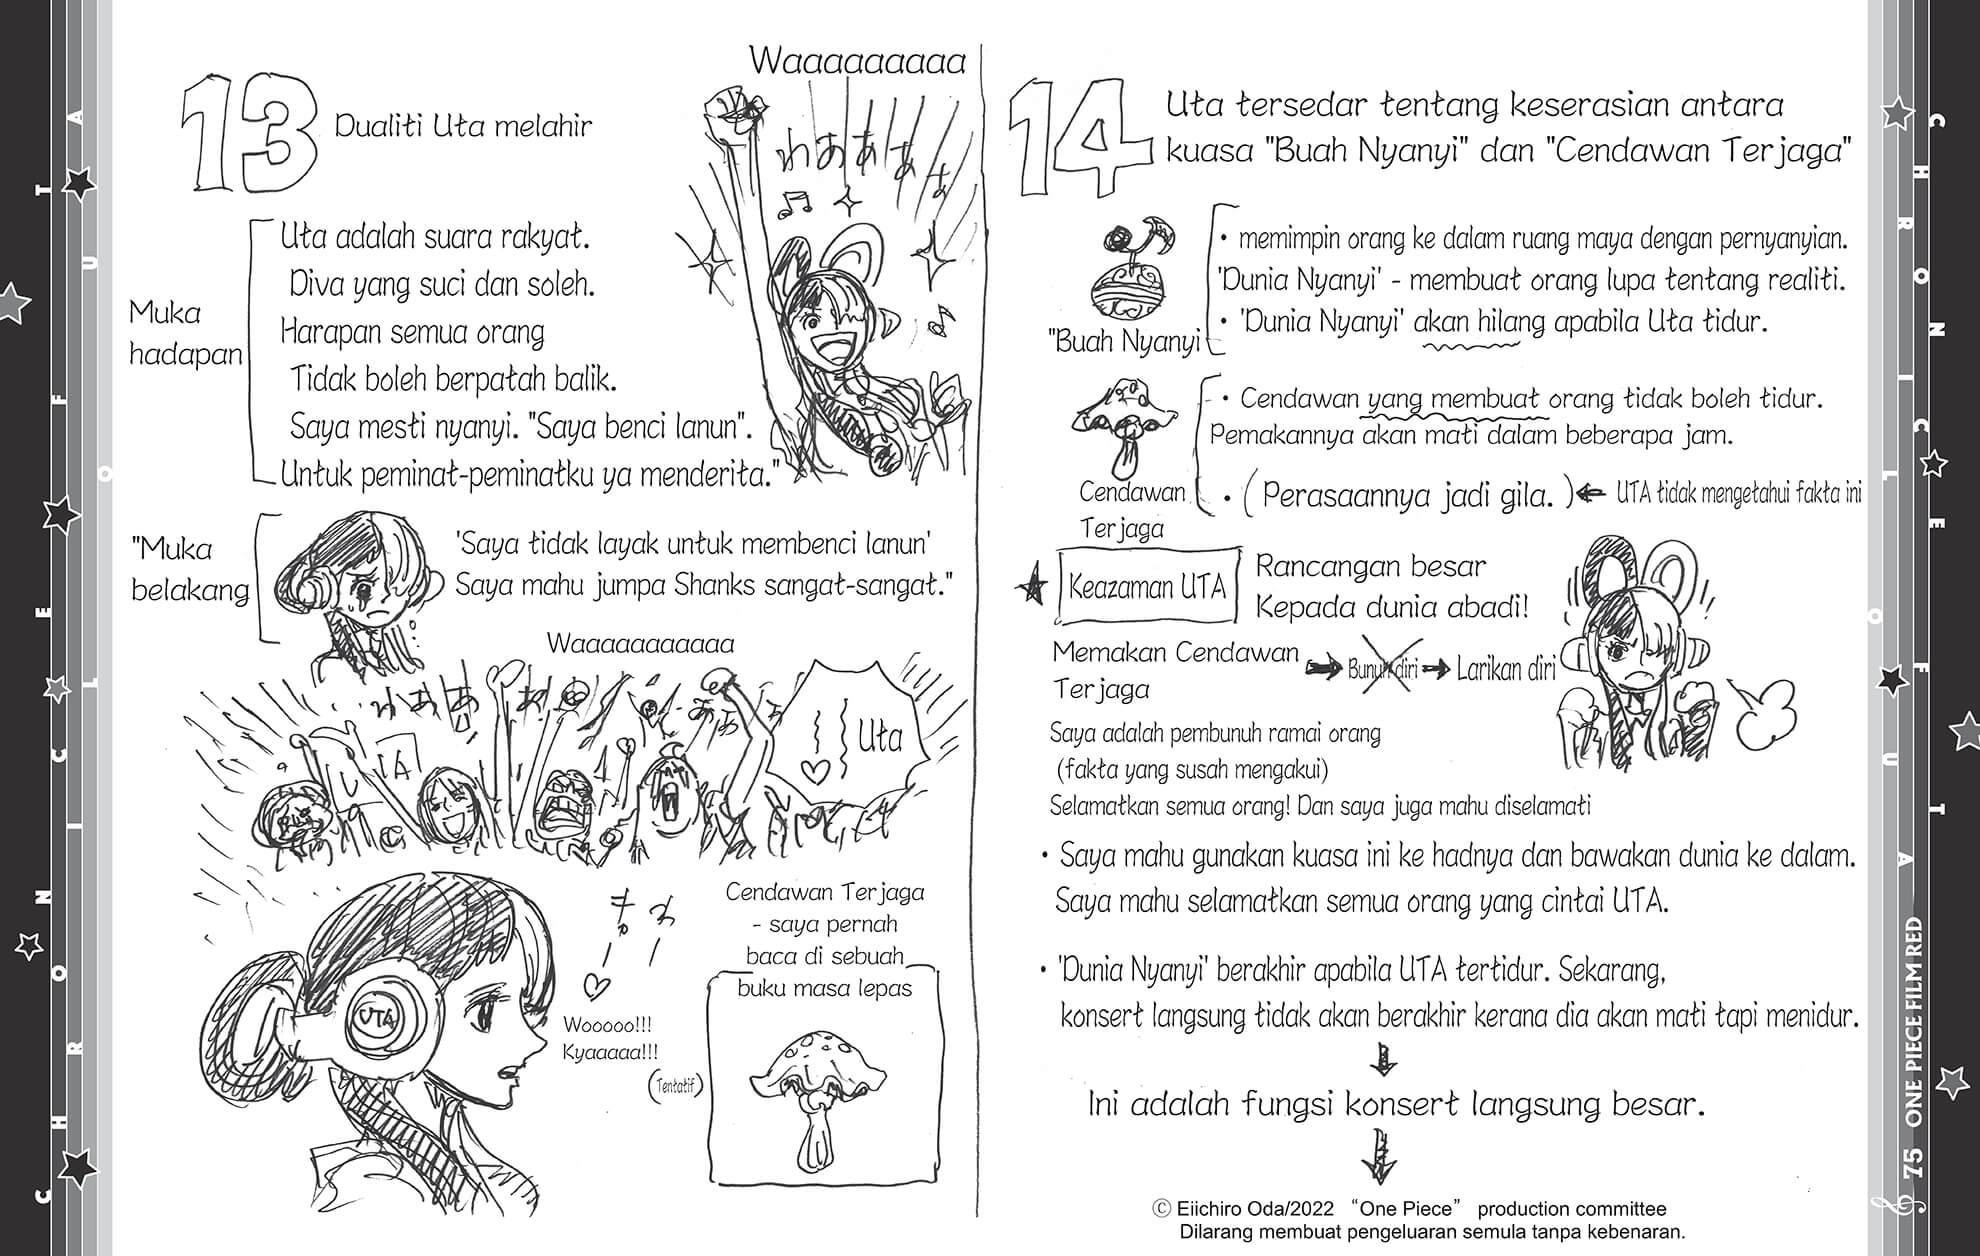 CHRONICLE OF UTA
13
Dualiti Uta melahir
Waaaaaaaaa
わああぁぁぁ
Muka
hadapan
Uta adalah suara rakyat.
Diva yang suci dan soleh.
Harapan semua orang
Tidak boleh berpatah balik.
Saya mesti nyanyi. "Saya benci lanun".
Untuk peminat-peminatku ya menderita."
"Muka
belakang
'Saya tidak layak untuk membenci lanun'
Saya mahu jumpa Shanks sangat-sangat."
Waaaaaaaaaaa
わああ
U
TA
Uta
UTA
Wooooo!!!
Kyaaaaa!!!
(Tentatif)
Cendawan Terjaga
- saya pernah
baca di sebuah
buku masa lepas
14
Uta tersedar tentang keserasian antara
kuasa "Buah Nyanyi" dan "Cendawan Terjaga"
"Buah Nyanyi
• memimpin orang ke dalam ruang maya dengan pernyanyian.
'Dunia Nyanyi' - membuat orang lupa tentang realiti.
• 'Dunia Nyanyi' akan hilang apabila Uta tidur.
Cendawan
Terjaga
• Cendawan yang membuat orang tidak boleh tidur.
Pemakannya akan mati dalam beberapa jam.
• (Perasaannya jadi gila.) ← UTA tidak mengetahui fakta ini
★ Keazaman UTA
Rancangan besar
Kepada dunia abadi!
Memakan Cendawan
Terjaga
→ Bunuh diri → Larikan diri
Saya adalah pembunuh ramai orang
(fakta yang susah mengakui)
Selamatkan semua orang! Dan saya juga mahu diselamati
• Saya mahu gunakan kuasa ini ke hadnya dan bawakan dunia ke dalam.
Saya mahu selamatkan semua orang yang cintai UTA.
• 'Dunia Nyanyi' berakhir apabila UTA tertidur. Sekarang,
konsert langsung tidak akan berakhir kerana dia akan mati tapi menidur.
↓
Ini adalah fungsi konsert langsung besar.
↓
Ⓒ Eiichiro Oda/2022 “One Piece” production committee
Dilarang membuat pengeluaran semula tanpa kebenaran.
CHRONICLE OF UTA
75 ONE PIECE FILM RED